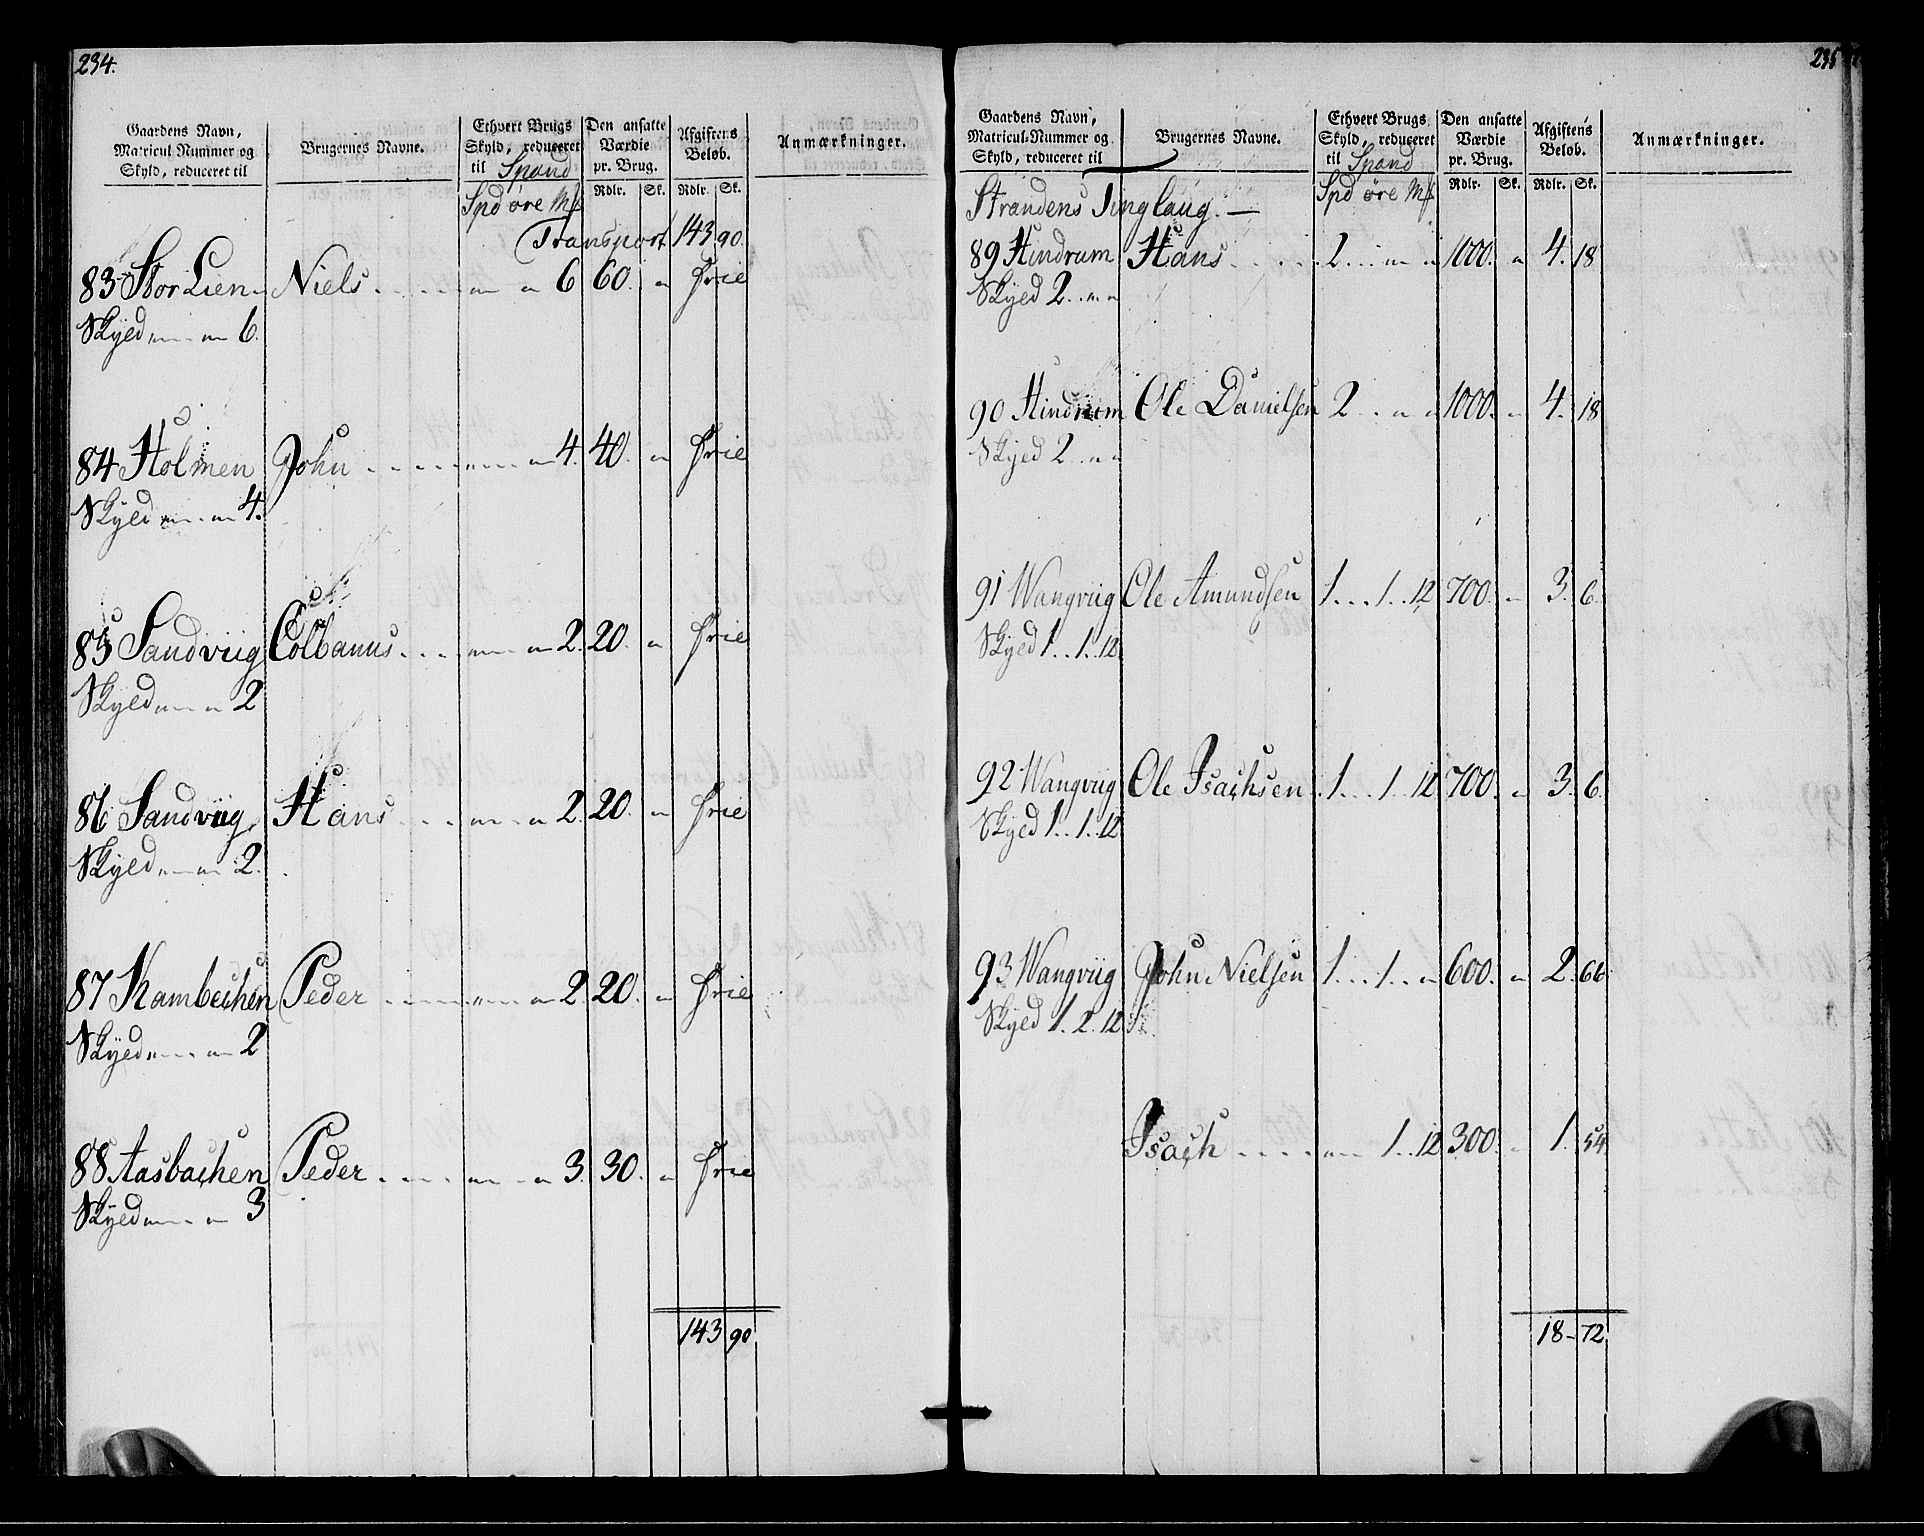 234.
Gaardens Navn, Matricul Nummer og Skyld, reduceret til | Brugernes Navne. | Ethvert Brugs Skyld, reduceret til Spand | Den ansatte Værdie pr. Brug. | Afgiftens Beløb. | Anmærkninger.
Spd øre Mk | Rdlr. | Sk. | Rdlr. | Sk.
Transport 143 90.
83 Stor Lien Niels 6 60. Frie
Skyld 6.
84 Holmen John 4. 40. Frie
Skyld 4.
85 Sandviig Colbanus 2. 20. Frie
Skyld 2
86 Sandviig Hans 2. 20. Frie
Skyld 2.
87 Kambechen Peder 2. 20. Frie
Skyld 2
88 Aasbachen Peder 3. 30. Frie
Skyld 3
143 90
235
Gaardens Navn, Matricul-Nummer og Skyld, reduceret til | Brugernes Navne. | Ethvert Brugs Skyld, reduceret til Spand | Den ansatte Værdie pr. Brug. | Afgiftens Beløb. | Anmærkninger.
Spd øre Mk | Rdlr. | Sk. | Rdlr. | Sk.
Strandens Tinglaug. —
89 Hindrum Hans 2 1000. 4. 18
Skyld 2
90 Hindrem Ole Danielsen 2 1000. 4. 18
Skyld 2
91 Wangviig Ole Amundsen 1 . . . 1 . . 12 700. 3. 6.
Skyld 1 . . 1 . . 12
92 Wangviig Ole Isachsen 1 . . . 1 . . 12 700. 3. 6.
Skyld 1 . . 1 . . 12
93 Wangviig John Nielsen 1 . . . 1 . . 600. 2. 66
Skyld 1 . 2 . 12
Isach 1 . . 12 300. 1. 54
18 - 72.